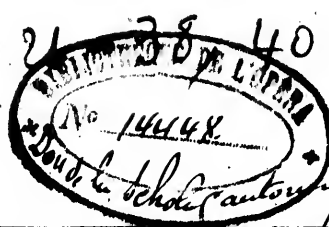 21 38 40
BIBLIOTHEQUE DE L'OPERA
No 14448
Don de la Schola Cantorum